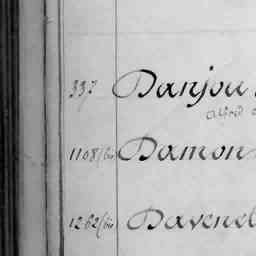 337 Danjou
Alfred
1108 (bis) Damon
1262 (bis) Davenel